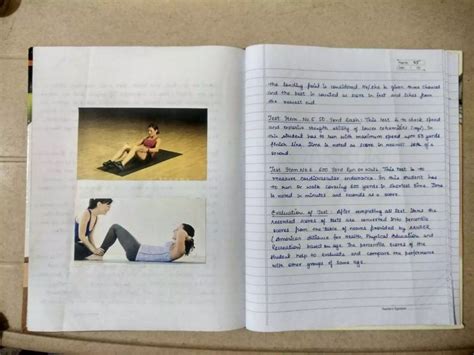 The landing point is considered. He/she is given three chances
and the best is counted in score in feet and inches from
the nearest end.
Test Item No.5 50 Yard Dash: This test is to check speed
and explosive strength ability of lower extremities (legs). In
this student has to run with maximum speed upto 50 yards
finish line. Time is noted as score to nearest 10th of a
second.
Test Item No.6 600 Yard Run or Walk: This test is to
measure cardiovascular endurance. In this student has
to run or walk covering 600 yards in shortest time. Time
is noted in minutes and seconds as a score.
Evaluation of Test: After completing all test items the
recorded scores of tests are converted into percentile
scores from the table of norms provided by AAHPER
(American Alliance for Health, Physical Education and
Recreation) based on age. The percentile scores of the
student help to evaluate and compare the performance
with other groups of same age.
Teacher's Signature